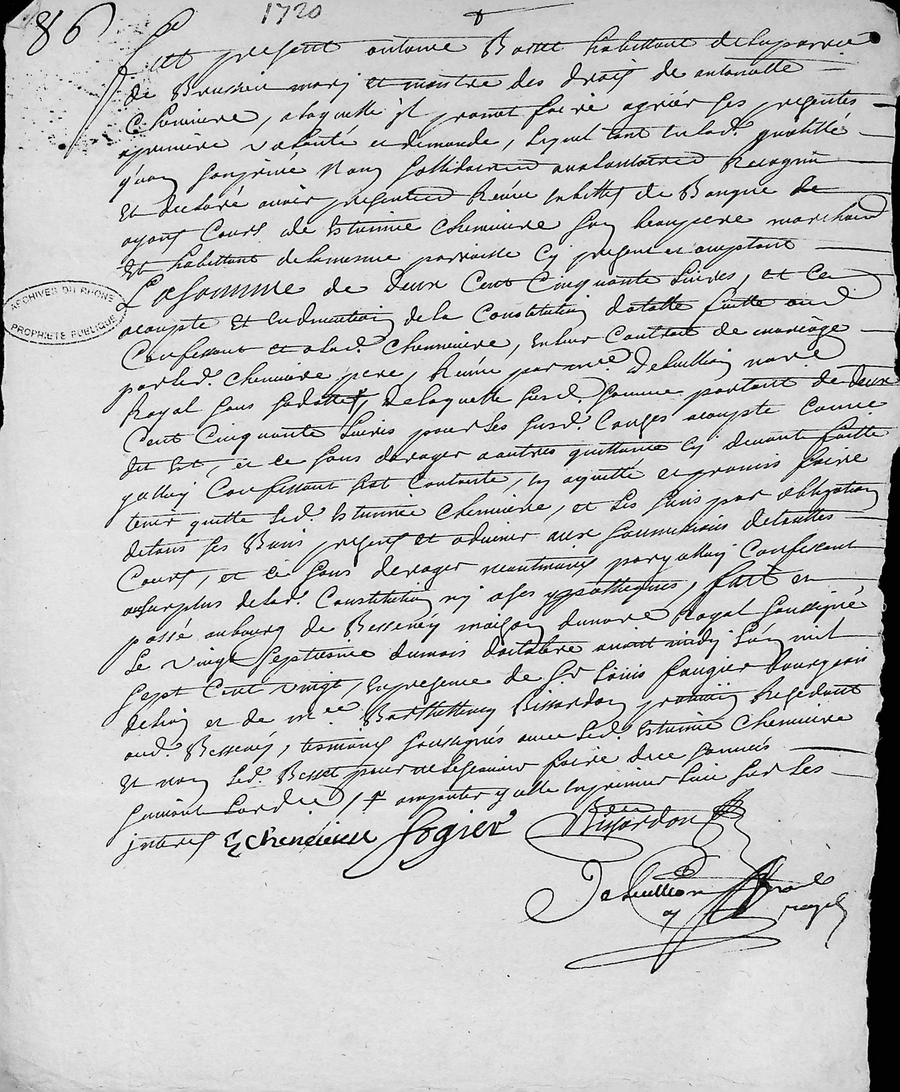 86
1720
fut present antoine Besset habittant de la parroisse
de Brussieu mary et maistre des droits de antoinette
Cheiniere, a laquelle il promet faire agréér ses presentes
a premiere volonté et demande, lequel tant en lad. quallitté
qu'en son privé nom sollidairem volontairem Recognu
Et declaré avoir presentem Receu en billets de Banque de
ayant Cours de Estienne Cheiniere son beaupere marchand
Et habittant de la mesme parroisse cy present et acceptant
La somme de deux Cent Cinquante Livres, et ce
acompte Et en deduction de la Constitution dotalle faitte aud
Confessant et a lad. Cheiniere, en leur Contrat de mariage
par led. Cheiniere pere, Receu par me Debullion notre
Royal sous sa datte, de laquelle susd. somme portant de deux
Cent Cinquante Livres pour les susd. Causes acompte Comme
dit est, et ce sans deroger a autres quittances cy devant faitte
Confessant est Contente, en quitte et promis faire
tenir quitte led. Estienne Cheiniere, et les siens par obligation
de tous ses Biens presents et advenir aux soumissions de touttes
Cours, et ce sans deroger neantmoins par Confessant
au surplus de lad. Constitution ny a ses yppotheques, fait et
passé au bourg de Bessenay maison du notre Royal soussigné
Le vingt septiesme du mois d'octobre avant midy L'an mil
sept Cent vingt, en presence de sr Louis faugier Bourgeois
de lion et de me Barthellemy Bissardon praticien Residant
aud. Bessenay, tesmoins soussignés avec led. Estienne Cheiniere
Et non led. Besset pour ne le scavoir faire de ce sommés
suivant L'ordre
interest E cheneiere fogier Bissardon
Debullion
no.re royal
ARCHIVES DU RHONE
PROPRIÉTÉ PUBLIQUE